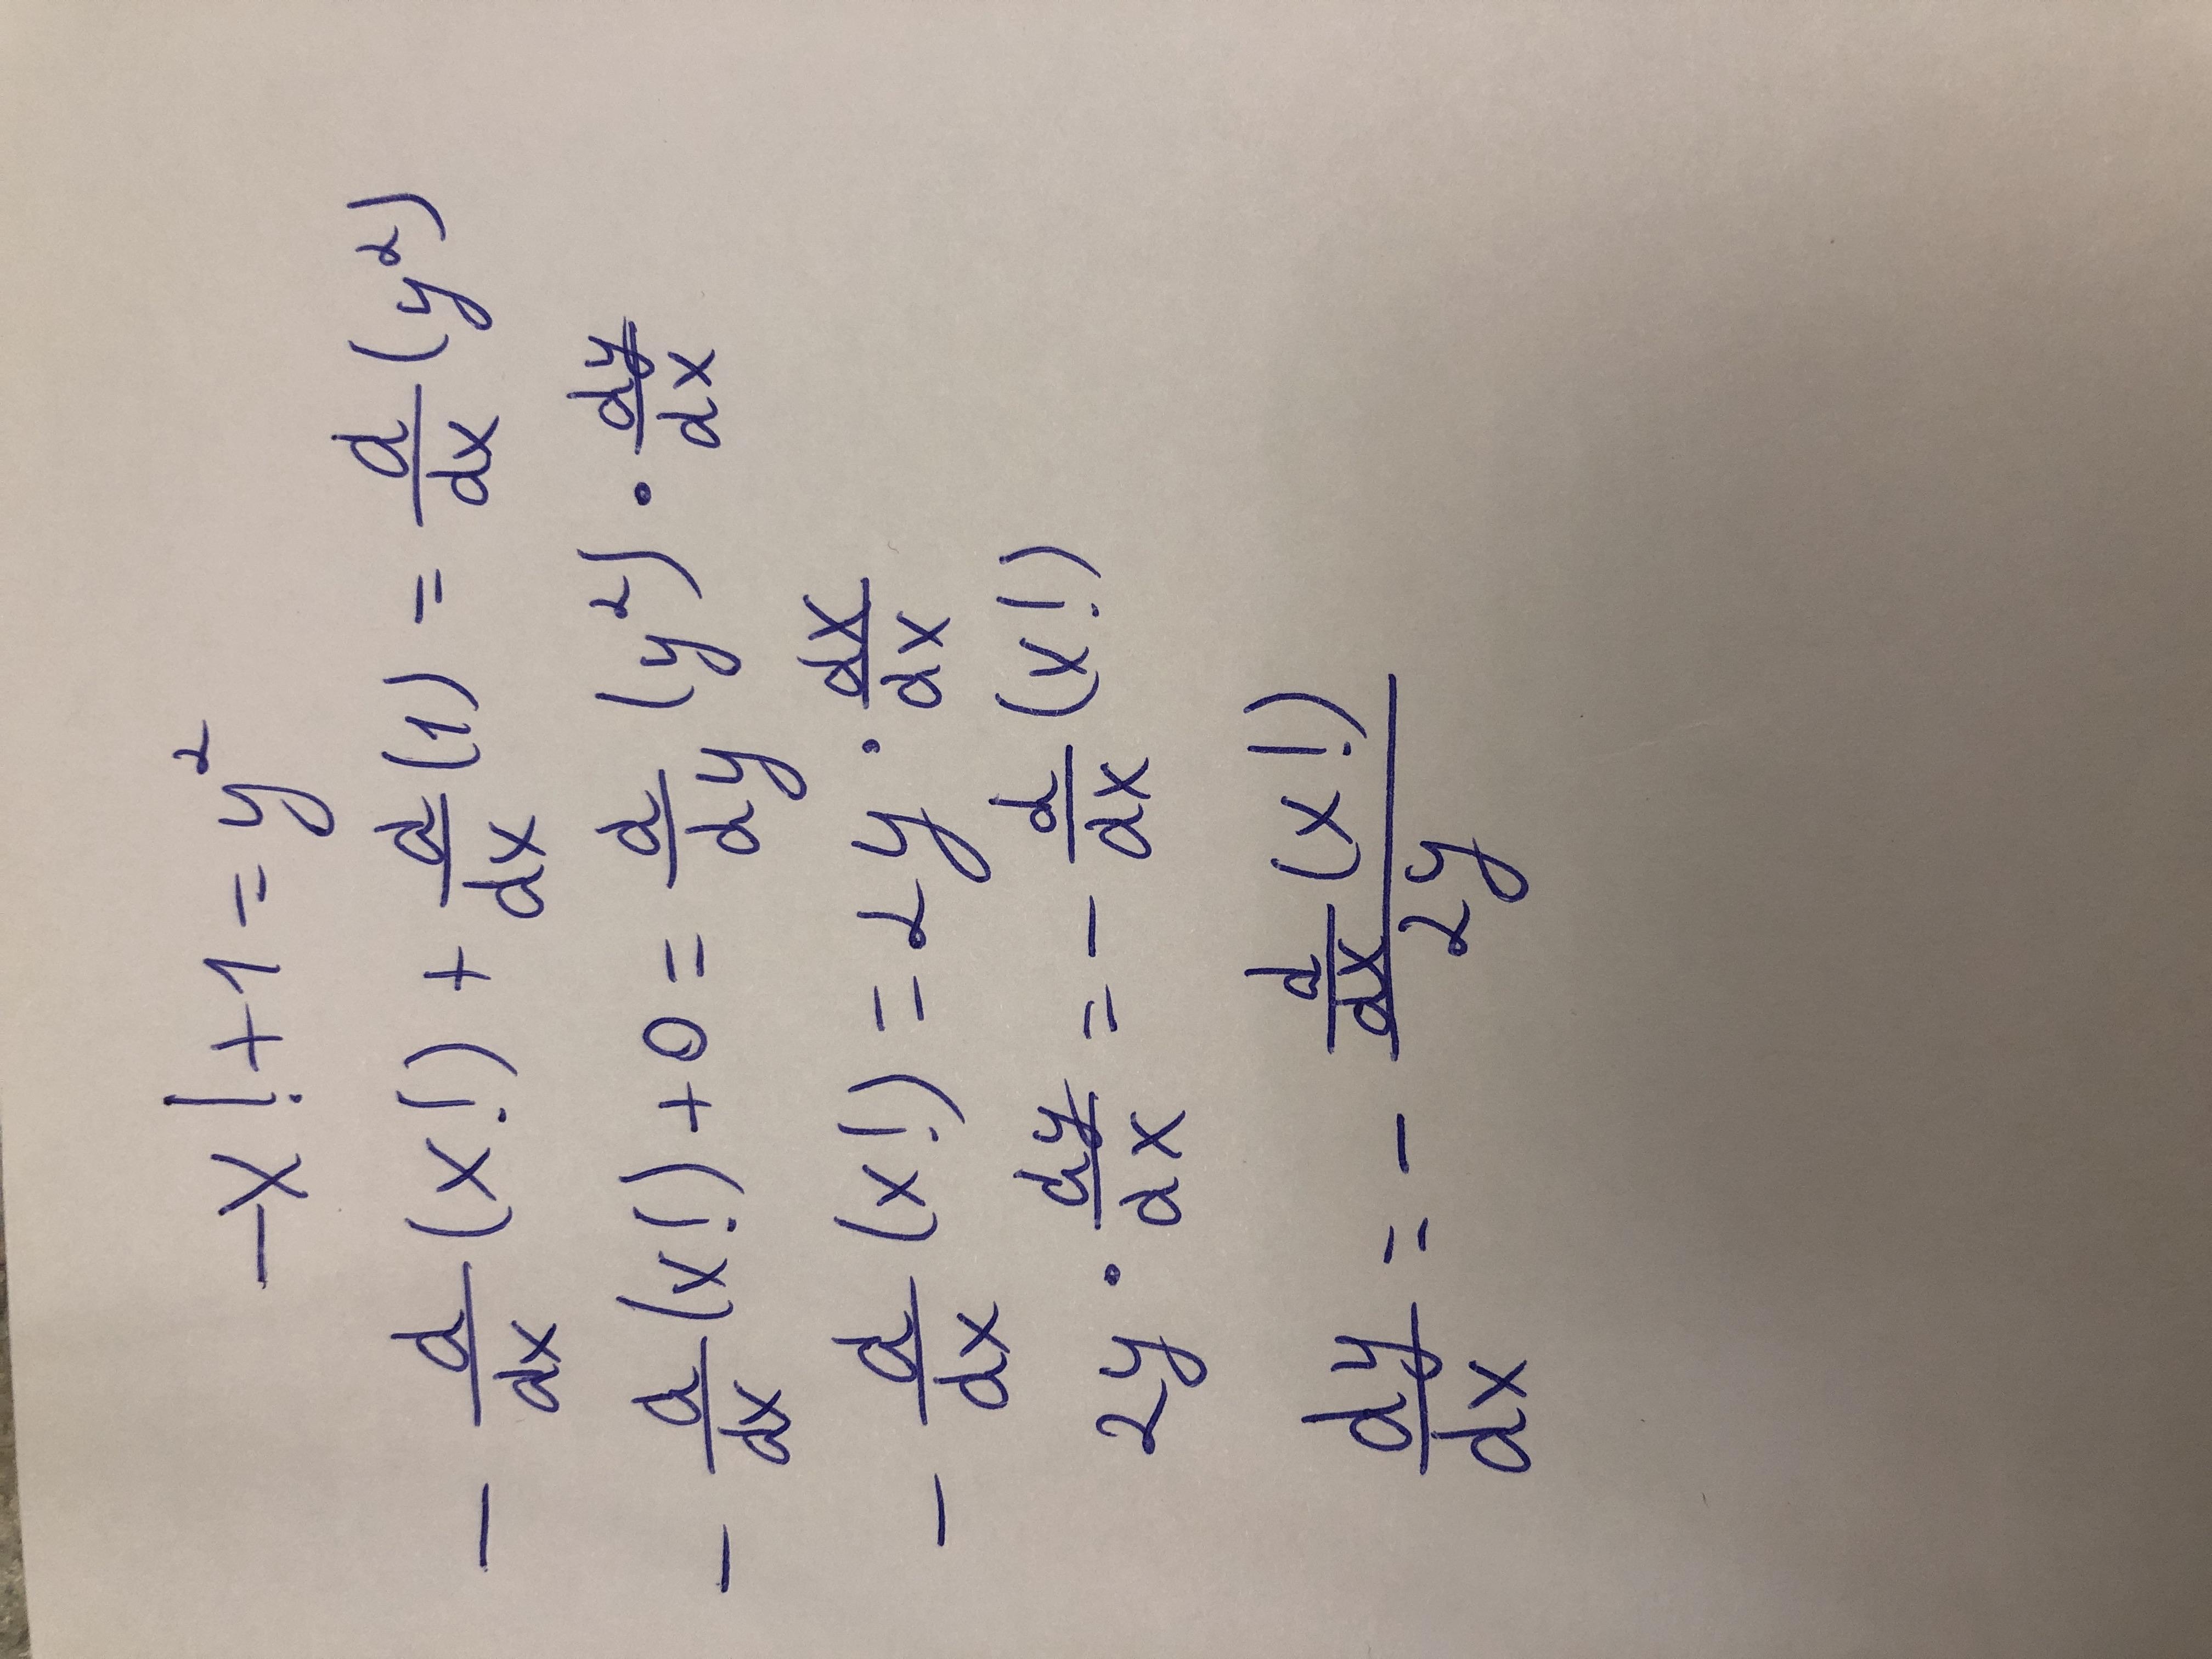 -x!+1=y²
- d/dx (x!) + d/dx (1) = d/dx (y²)
- d/dx (x!) + 0 = d/dy (y²) · dy/dx
- d/dx (x!) = 2y · dx/dx
2y · dy/dx = - d/dx (x!)
dy/dx = - (d/dx (x!))/(2y)